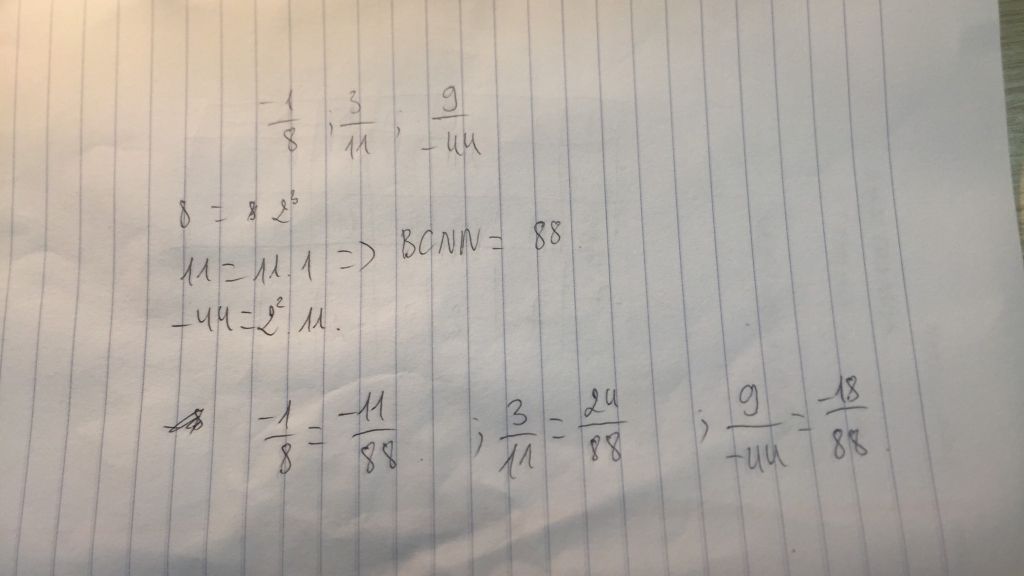 -1/8 ; 3/11 ; 9/-44
8 = 2³
11 = 11.1 => BCNN = 88
-44 = 2² 11.
-1/8 = -11/88 ; 3/11 = 24/88 ; 9/-44 = -18/88